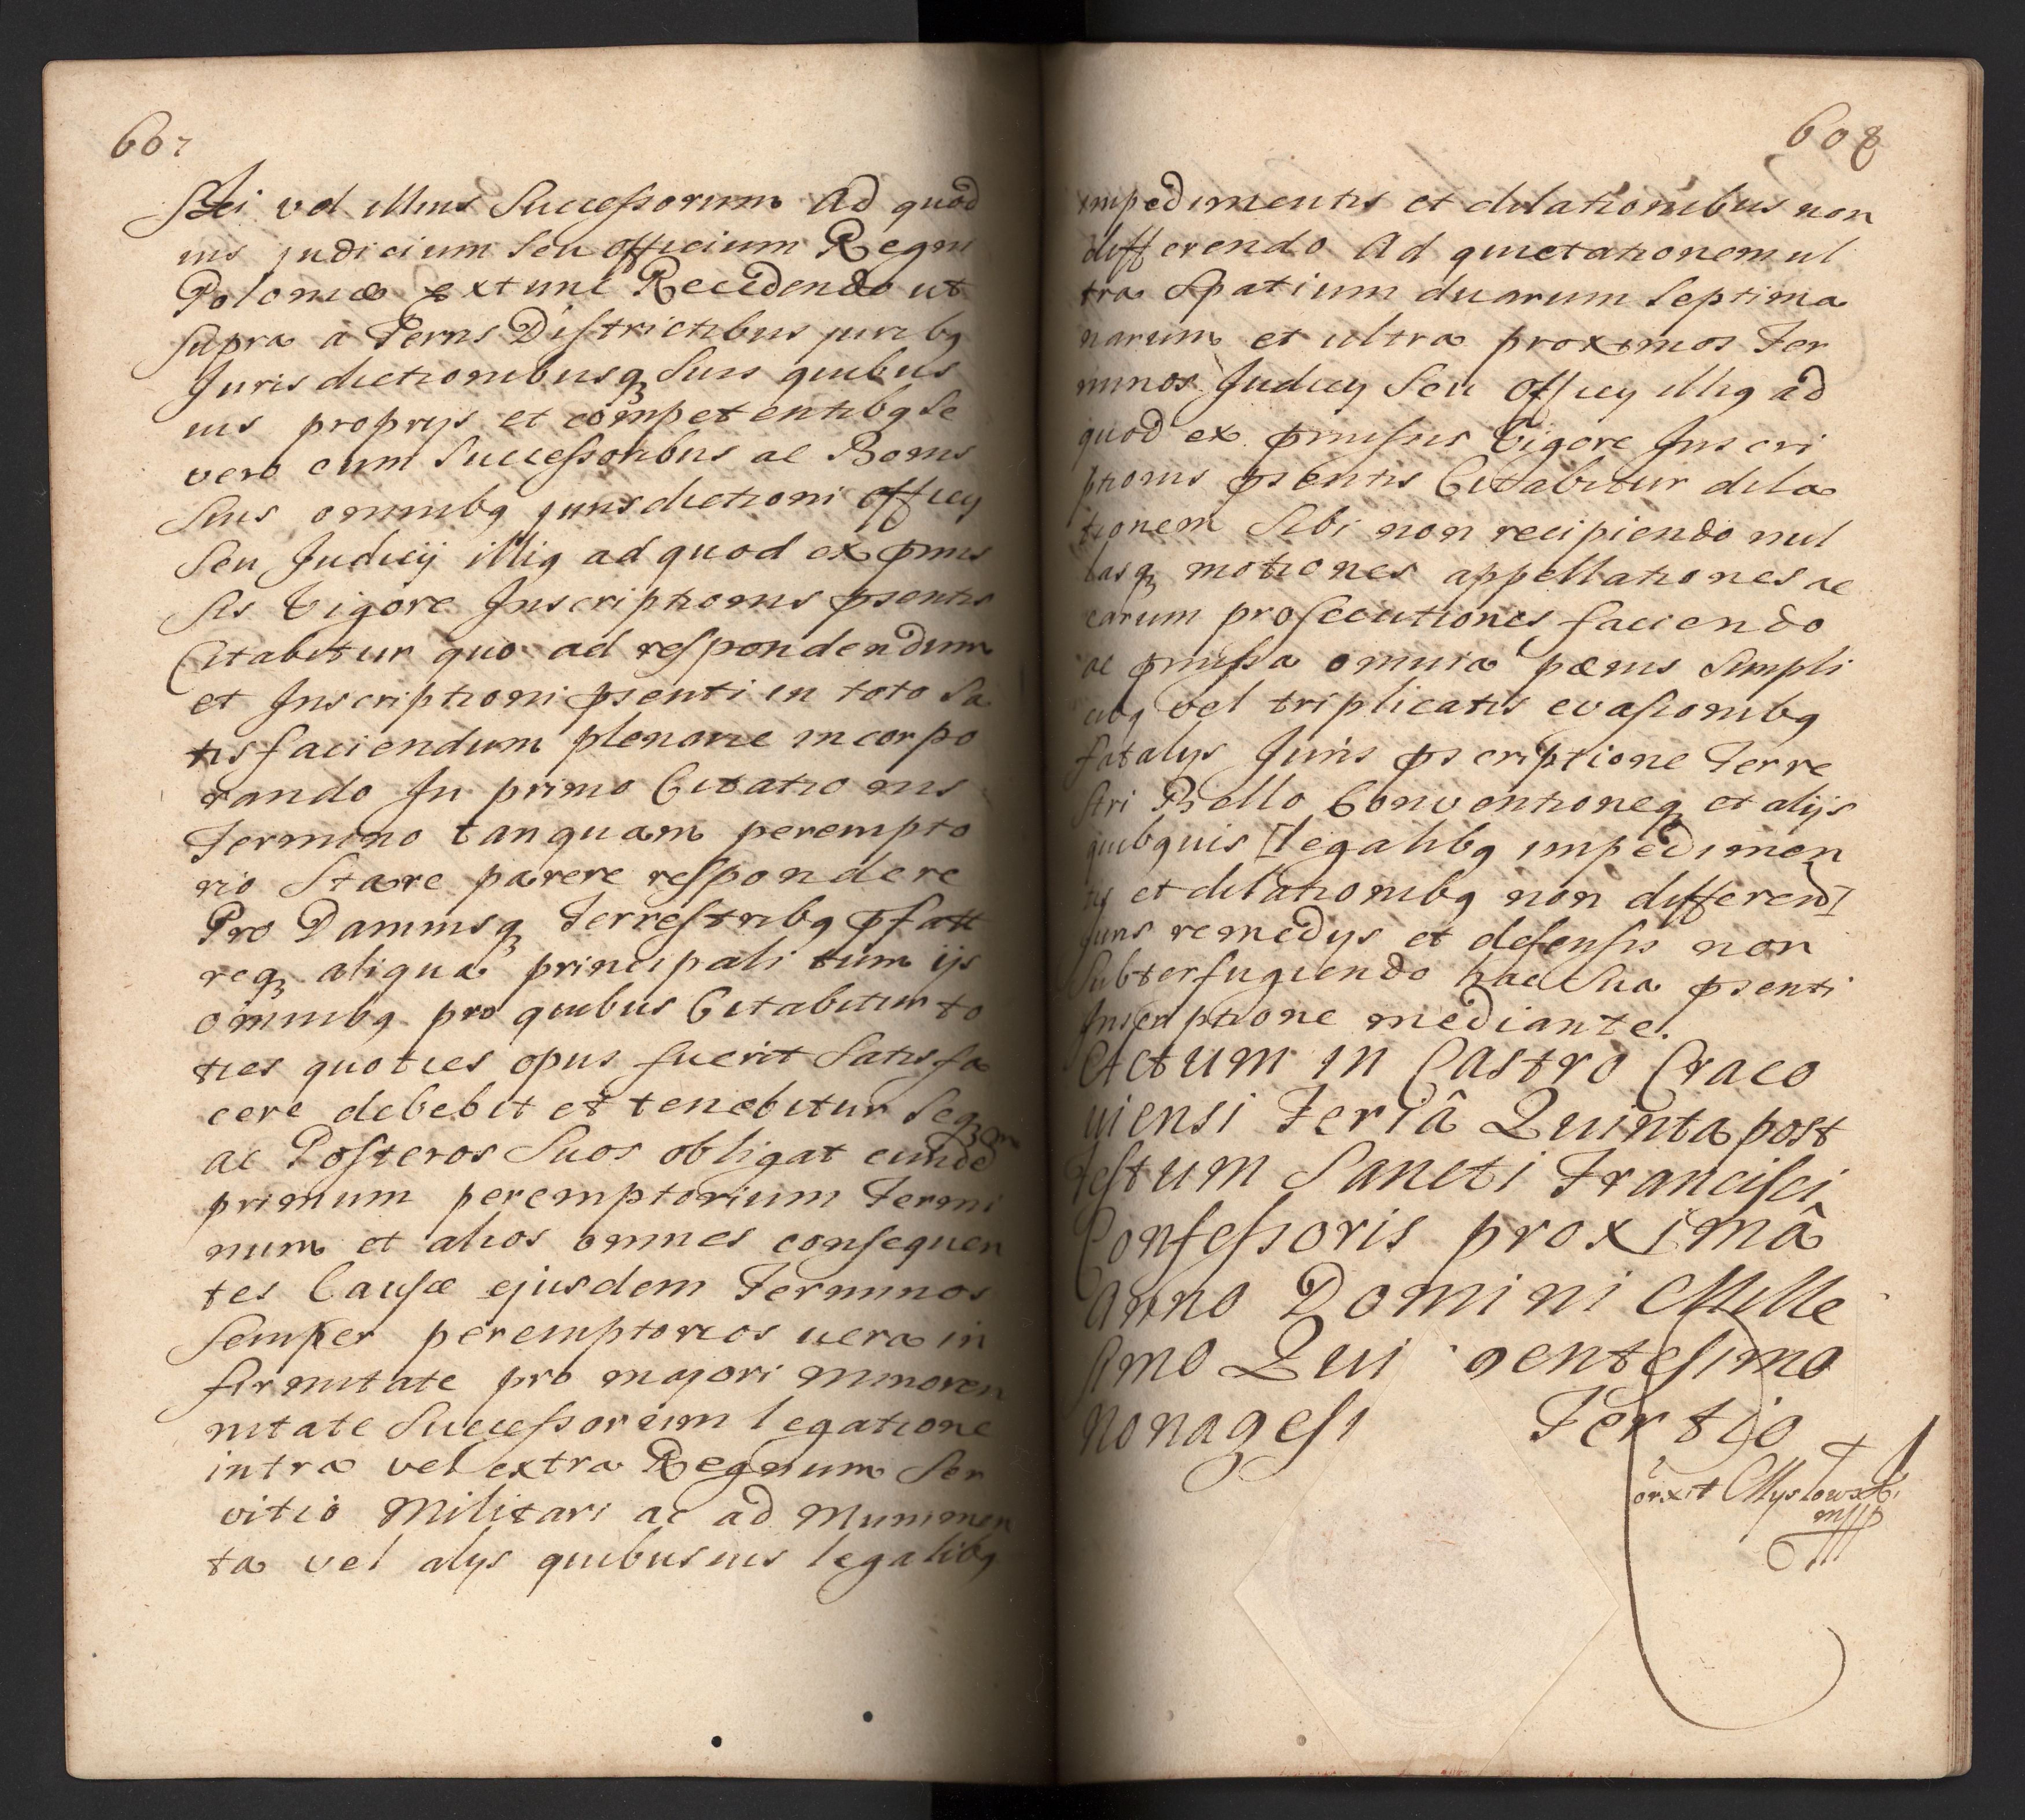 607
Sui vel illius Successorum Ad quod
vis judicium Seu officium Regni
Poloniæ extunc Recedendo ut
supra a Terris Districtibus juribq
Jurisdictionibusq Suis quibus
vis proprijs et competentibq Se
vero cum Successoribus ac Bonis
Suis omnibq jurisdictioni officy
Seu Judicij illiq ad quod ex pmis
sis Vigore Inscriptionis psentis
Citabitur quo ad respondendum
et Inscriptioni psenti in toto Sa
tisfaciendum plenarie incorpo
rando In primo Citatio nis
Termino tanquam perempto
rio Stare parere respondere
Pro Damnisq Terrestribq pfatt
req aliqua principali tum ijs
omnibq pro quibus Citabitur to
ties quoties opus fuerit Satisfa
cere debebit et tenebitur Seq
ac Posteros Suos obligat eundem
primum peremptorium Termi
num et alios omnes consequen
tes Causæ ejusdem Terminos
Semper peremptorios vera in
firmitate pro majori minoren
nitate Successorum legatione
intra vel extra Regnum Ser
vitio Militari ac ad Munimen
ta vel alys quibusvis legalibq
608
impedimentis et dilationibus non
differendo Ad quietationem ul
tra Spatium duarum Septima
narum et ultra proximos Ter
minos Judicy Seu officy illiq ad
quod ex pmissis Vigore Inscri
ptionis psentis Citabitur dila
tionem Sibi non recipiendo nul
lasq motiones appellationes ac
earum prosecutiones faciendo
ac pmissa omnia pænis Simpli
cibq vel triplicatis evasionibq
fatalys Juris pscriptione Terre
stri Bello Conventioneq et alijs
quibquis [legalibq impedimen
tis et dilationibq non differend]
Juris remedys et defensis non
Subterfugiendo hac Sua psenti
Inscriptione mediante.
Actum in Castro Craco
viensi Feriâ Quinta post
Festum Sancti Francisci
Confessoris proximâ
Anno Domini Mille
simo Qui gentesimo
Nonagesi Tertio
Corxit Myslowski
mppp